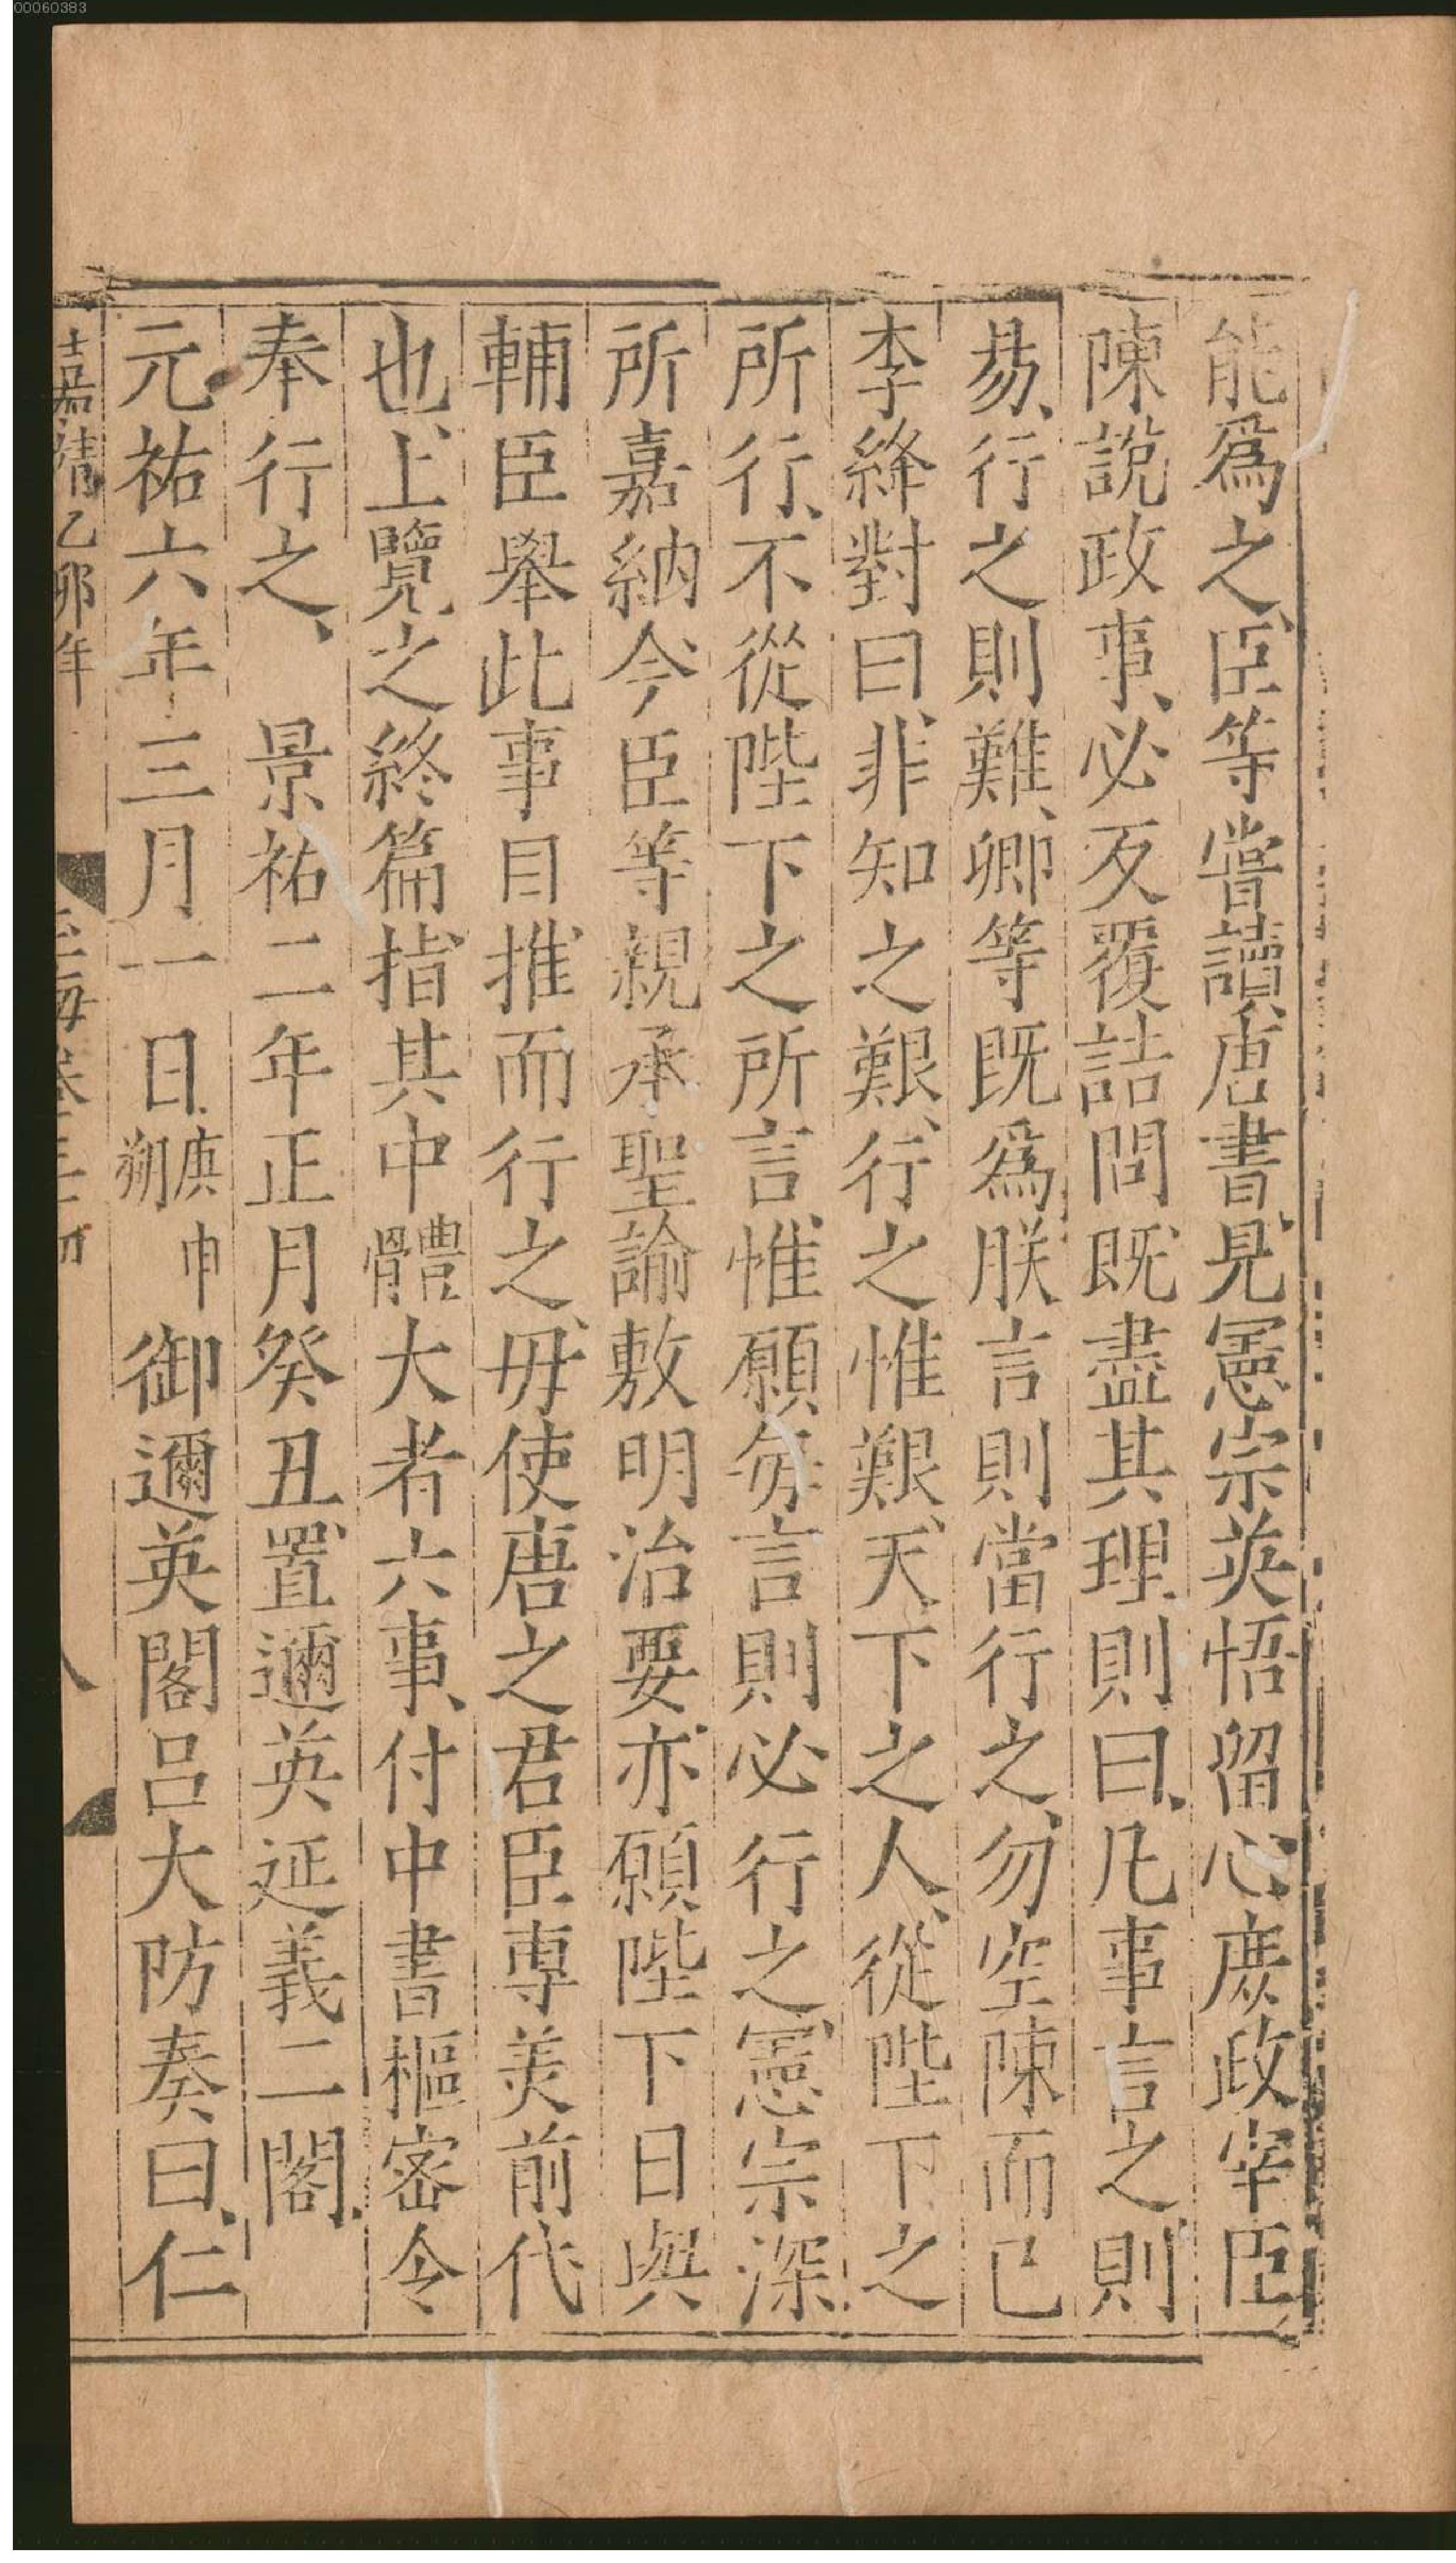 00060383
能爲之臣等嘗讀唐書見憲宗英悟留心庶政宰臣
陳說政事必反覆詰問既盡其理則曰凡事言之則
易行之則難卿等既爲朕言則當行之勿空陳而已
李絳對曰非知之艱行之惟艱天下之人從陛下之
所行不從陛下之所言惟願每言則必行之憲宗深
所嘉納今臣等親承聖諭敷明治要亦願陛下日與
輔臣舉此事目推而行之毋使唐之君臣專美前代
也上覽之終篇指其中體大者六事付中書樞密令
奉行之 景祐二年正月癸丑置邇英延義二閣
元祐六年三月一日庚申朔御邇英閣呂大防奏曰仁
嘉靖乙卯年
玉海卷二十
八